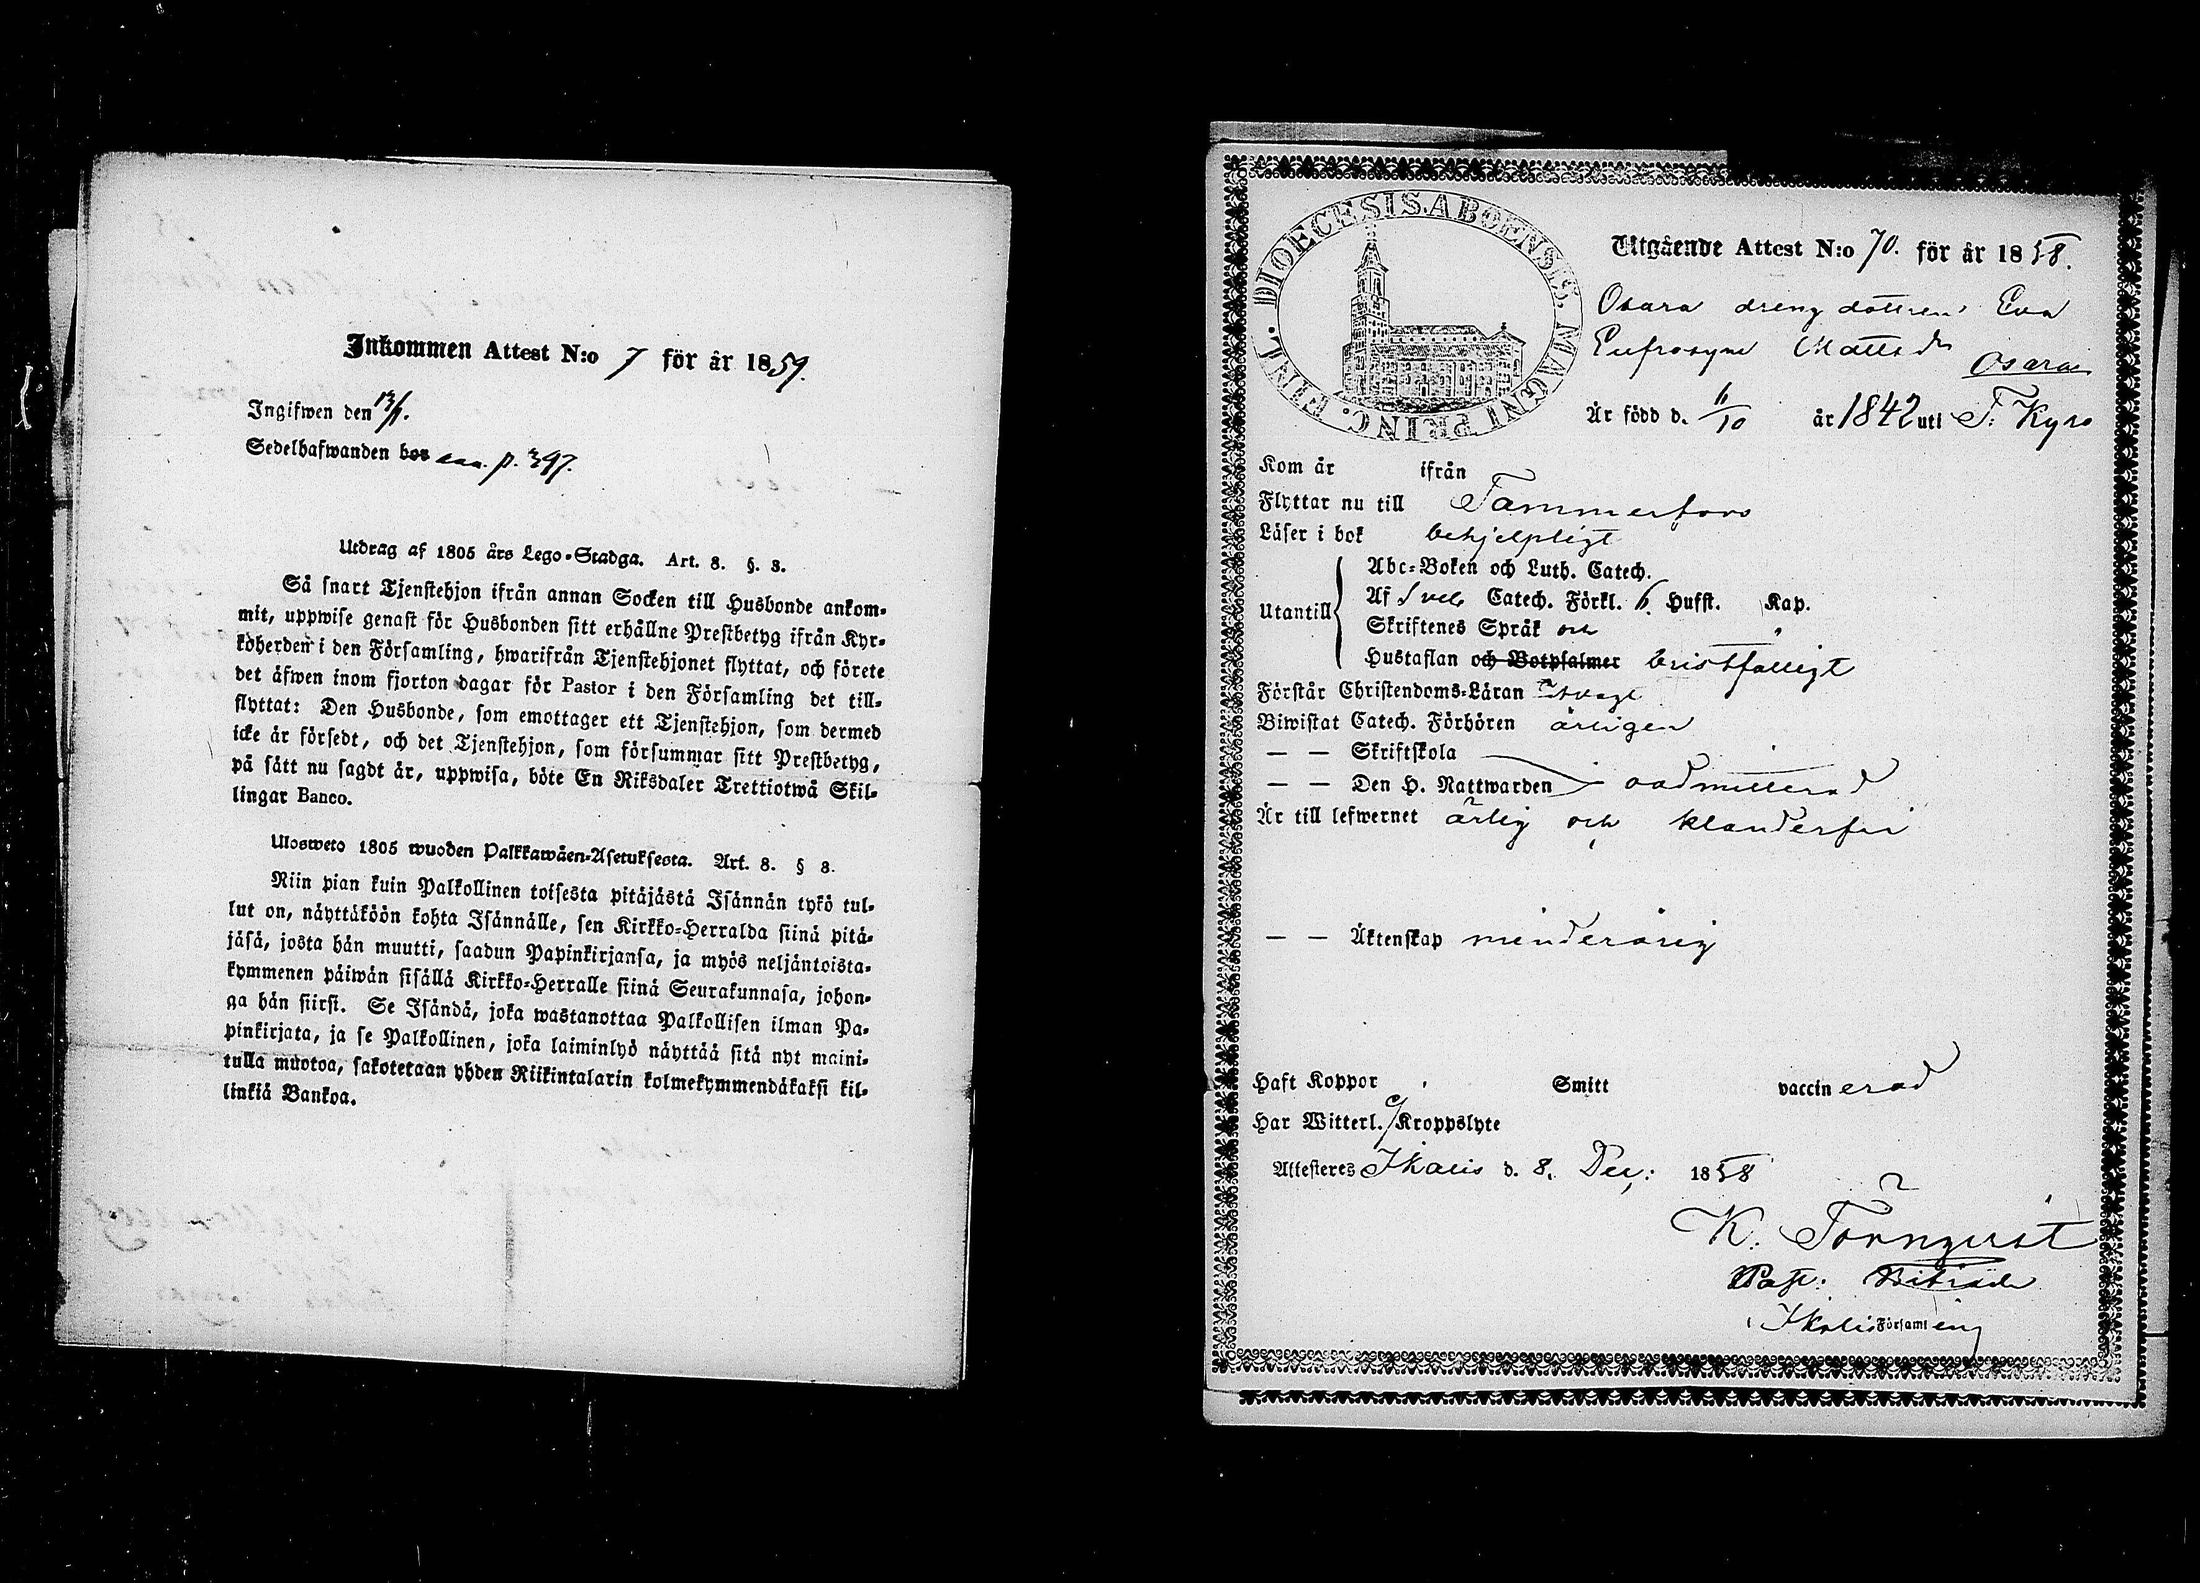 Inkommen Attest N:o 7 för år 1859.
Ingifwen den 13/1.
Sedelhafwanden bos p. 397.
Utdrag af 1805 års Lego-Stadga. Art. 8. §. 3.
Så snart Tjenstehjon ifrån annan Socken till Husbonde ankom-
mit, uppwise genast för Husbonden sitt erhållne Prestbetyg ifrån Kyr-
koherden i den Församling, hwarifrån Tjenstehjonet flyttat, och förete
det äfwen inom fjorton dagar för Pastor i den Församling det till-
flyttat: Den Husbonde, som emottager ett Tjenstehjon, som dermed
icke är försedt, och det Tjenstehjon, som försummar sitt Prestbetyg,
på sätt nu sagdt är, uppwisa, böte En Riksdaler Trettiotwå Skil-
lingar Banco.
Ulosweto 1805 wuoden Palkkawäen-Asetuksesta. Art. 8. § 3.
Niin pian kuin Palkollinen toisesta pitäjästä Isännän tykö tul-
lut on, näyttäköön kohta Isännälle, sen Kirkko-Herralda siinä pitä-
jäsä, josta hän muutti, saadun Papinkirjansa, ja myös neljäntoista-
kymmenen päiwän sisällä Kirkko-Herralle siinä Seurakunnasa, johon-
ga hän siirsi. Se Isändä, joka wastanottaa Palkollisen ilman Pa-
pinkirjata, ja se Palkollinen, joka laiminlyö näyttää sitä nyt maini-
tulla muotoa, sakotetaan yhden Riikintalarin kolmekymmendäkaksi kil-
linkiä Bankoa.
DIOECESIS. ABOENSIS. MAGNI PRINC. FINL.
Utgående Attest N:o 70. för år 1858.
Osara dreng dottren Eva
Eufrosyne Mattsdr Osara
Är född d. 6/10 år 1842 uti T. Kyro
Kom år ifrån
Flyttar nu till Tammerfors
Läser i bok behjelpligt
Utantill
Abc-Boken och Luth. Catech.
Af Sveb Catech. Förkl. 6. Hufst. Kap.
Skriftenes Språk och
Hustaflan och Botpsalmer bristfälligt
Förstår Christendoms-Läran svagt
Biwistat Catech. Förhören årligen
— — Skriftskola
— — Den H. Nattwarden oadmitterad
Är till lefwernet ärlig och klanderfri
— — Äktenskap minderårig
Haft Koppor Smitt vaccinerad
Har Witterl. Kroppslyte
Attesteres Ikalis d. 8. Dec: 1858
K. Törnqvist
Past: Biträde
i Ikalis Församling